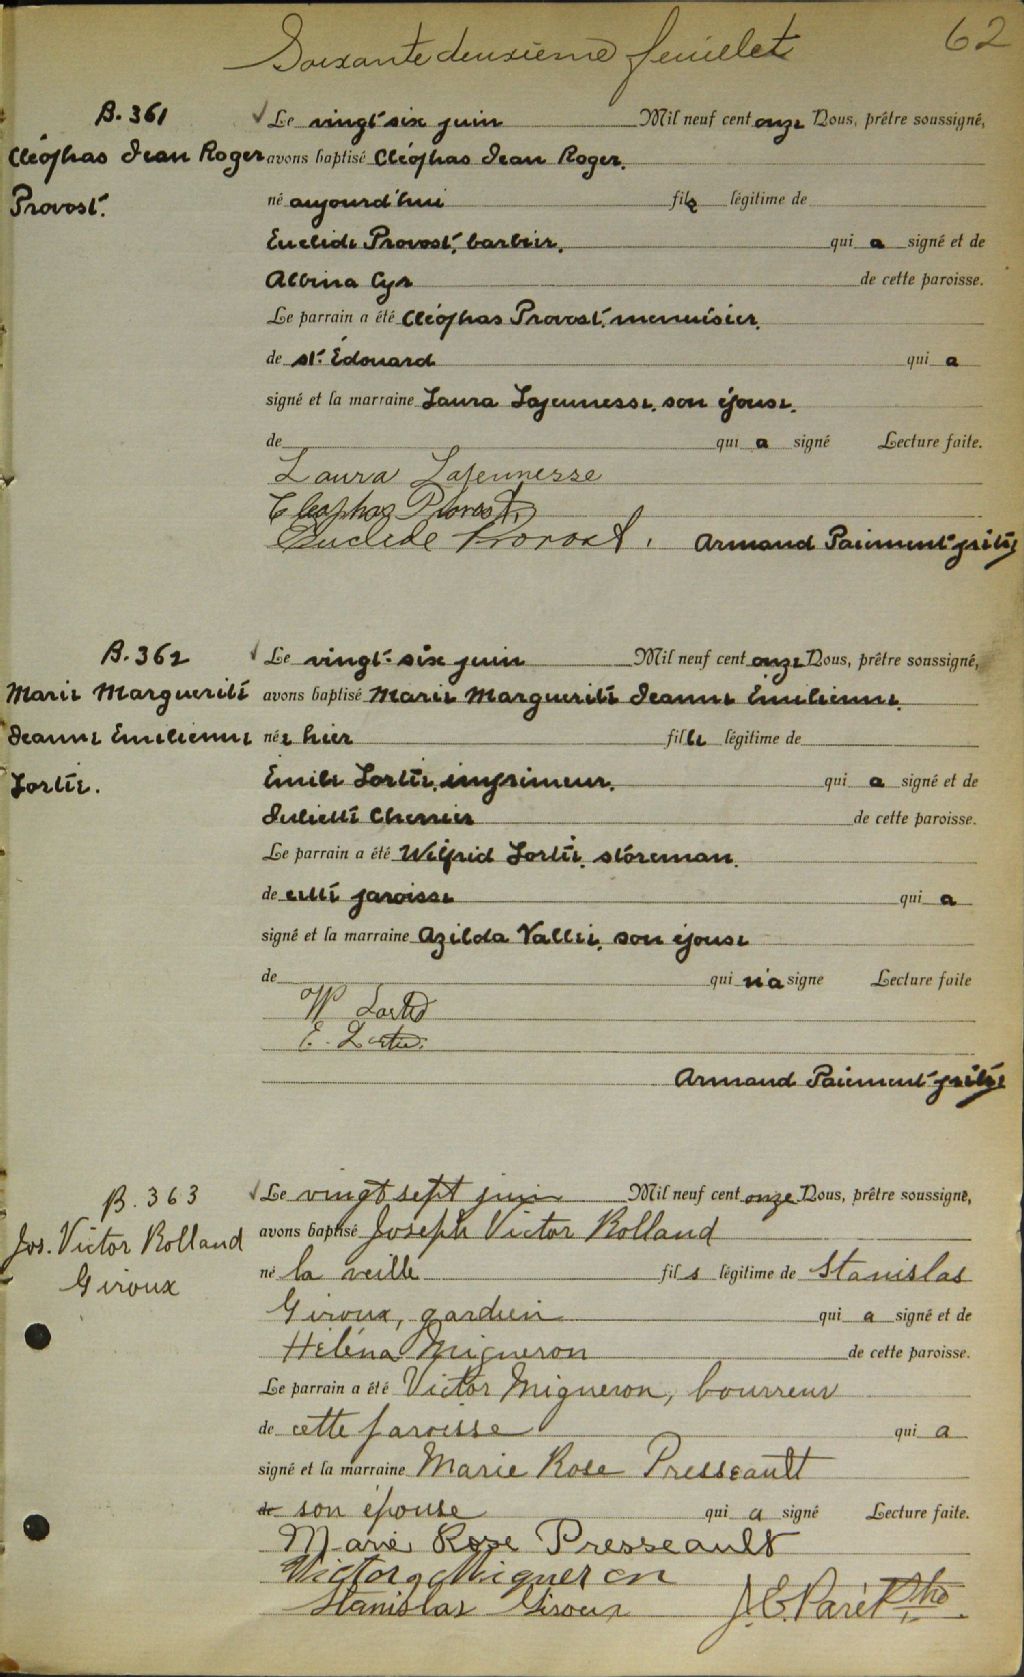 Soixante deuxième feuillet 62
B. 361
Cléophas Jean Roger
Provost.
Le vingt-six juin Mil neuf cent onze Nous, prêtre soussigné,
avons baptisé Cléophas Jean Roger.
né aujourd'hui fils légitime de
Euclide Provost, barbier, qui a signé et de
Albina Cyr de cette paroisse.
Le parrain a été Cléophas Provost, menuisier,
de St. Édouard qui a
signé et la marraine Laura Lajeunesse, son épouse.
de qui a signé Lecture faite.
Laura Lajeunesse
Cleophas Provost
Euclide Provost. Armand Paiement ptre
B. 362
Marie Marguerite
Jeanne Emilienne
Lortie.
Le vingt-six juin Mil neuf cent onze Nous, prêtre soussigné,
avons baptisé Marie Marguerite Jeanne Émilienne.
née hier fille légitime de
Émile Lortie, imprimeur, qui a signé et de
Juliette Cherrier de cette paroisse.
Le parrain a été Wilfrid Lortie, storeman,
de cette paroisse qui a
signé et la marraine Azilda Vallée, son épouse
de qui n'a signé Lecture faite
W Lortie
E. Lortie.
Armand Paiement ptre
B. 363
Jos. Victor Rolland
Giroux
Le vingt sept juin Mil neuf cent onze Nous, prêtre soussigné,
avons baptisé Joseph Victor Rolland
né la veille fils légitime de Stanislas
Giroux, gardien qui a signé et de
Héléna Migneron de cette paroisse.
Le parrain a été Victor Migneron, bourreur
de cette paroisse qui a
signé et la marraine Marie Rose Presseault
de son épouse qui a signé Lecture faite.
Marie Rose Presseault
Victor Migneron
Stanislas Giroux J. E. Paré Ptre.